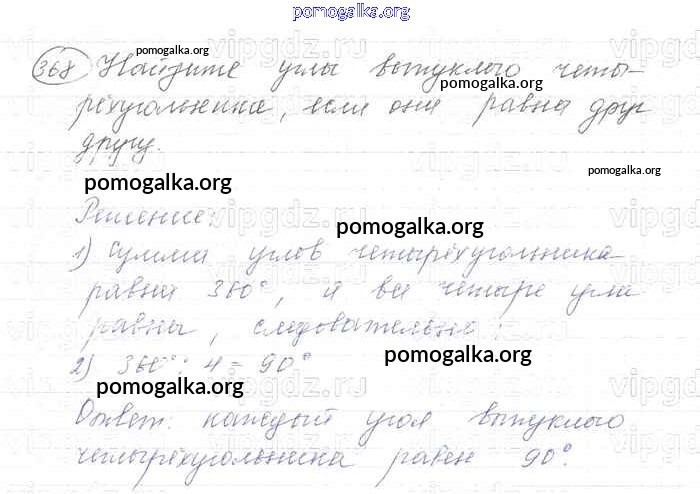 pomogalka.org
pomogalka.org
368 Найдите углы выпуклого четы-
pomogalka.org
рёхугольника, если они равны друг
другу.
pomogalka.org
pomogalka.org
Решение:
pomogalka.org
1) Сумма углов четырёхугольника
равна 360°, и все четыре угла
равны, следовательно:
2) 360° : 4 = 90°
pomogalka.org
pomogalka.org
Ответ: каждый угол выпуклого
четырёхугольника равен 90°.